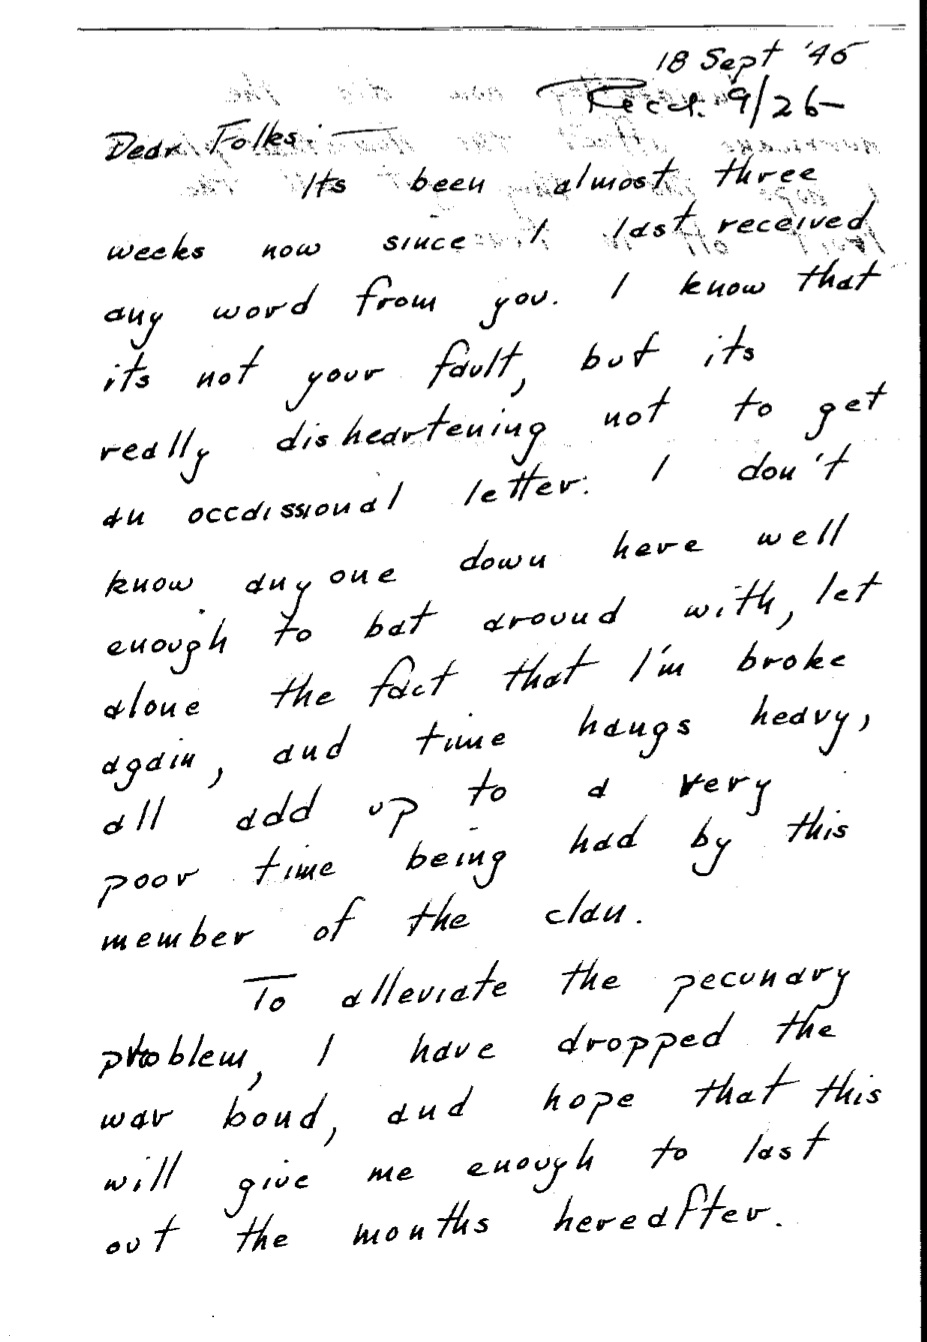 18 Sept '45
Recd. 9/26—
Dear Folks:—
Its been almost three
weeks now since I last received
any word from you. I know that
its not your fault, but its
really disheartening not to get
an occaissional letter. I don't
know anyone down here well
enough to bat around with, let
alone the fact that I'm broke
again, and time hangs heavy,
all add up to a very
poor time being had by this
member of the clan.
To alleviate the pecunary
problem, I have dropped the
war bond, and hope that this
will give me enough to last
out the months hereafter.